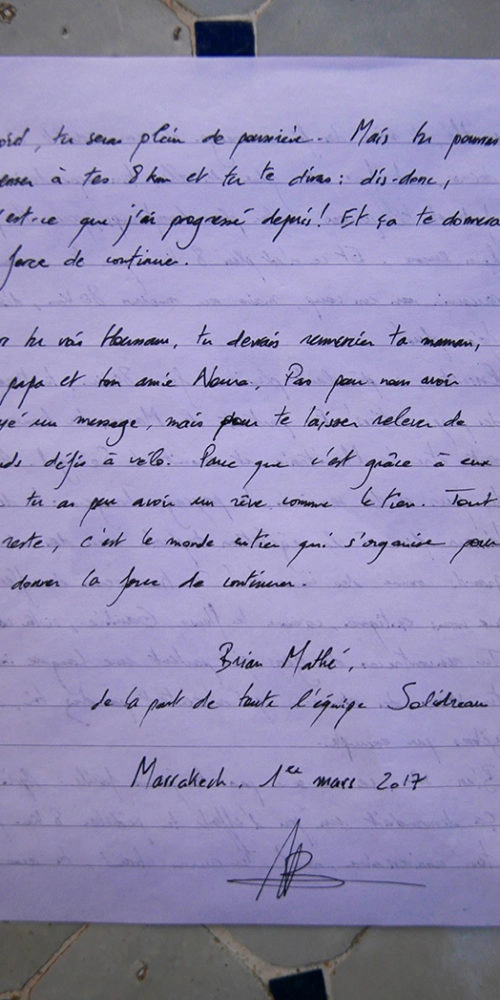 tu seras plein de poussière. Mais tu pourras
penser à tes 8 km et tu te diras : dis-donc,
est-ce que j'ai progressé depuis ! Et ça te donnera
force de continuer.
tu vois Houmam, tu devais remercier ta maman,
papa et ton amie Noura. Pas pour nous avoir
un message, mais pour te laisser relever de
défis à vélo. Parce que c'est grâce à eux
tu as pu avoir un rêve comme le tien. Tout
reste, c'est le monde entier qui s'organise pour
donner la force de continuer.
Brian Mathé,
de la part de toute l'équipe Solidream
Marrakech, 1er mars 2017